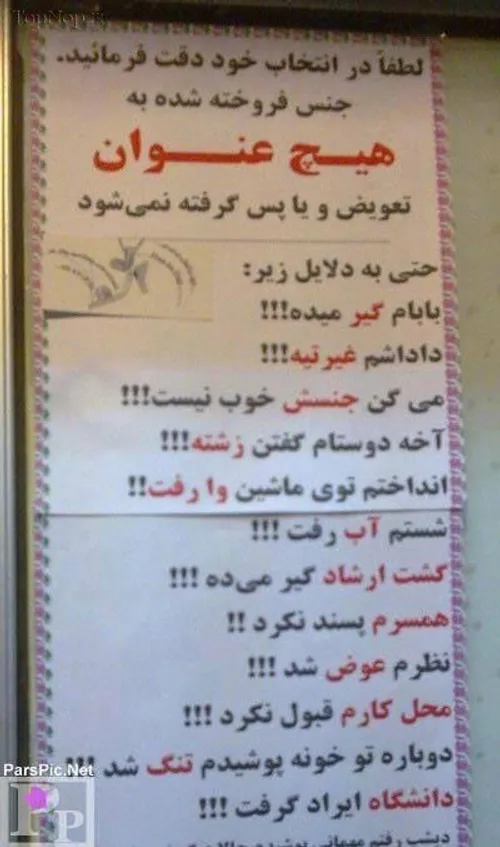 TopNop.ir
لطفاً در انتخاب خود دقت فرمائید.
جنس فروخته شده به
هیـچ عنـــوان
تعویض و یا پس گرفته نمی‌شود
حتی به دلایل زیر:
بابام گیر میده!!!
داداشم غیرتیه!!!
می گن جنسش خوب نیست!!!
آخه دوستام گفتن زشته!!!
انداختم توی ماشین وا رفت!!
شستم آب رفت !!!
گشت ارشاد گیر می‌ده !!!
همسرم پسند نکرد !!
نظرم عوض شد !!!
محل کارم قبول نکرد !!!
دوباره تو خونه پوشیدم تنگ شد !!!
دانشگاه ایراد گرفت !!!
دیشب رفتم مهمانی پوشیدم حالا
ParsPic.Net
PP